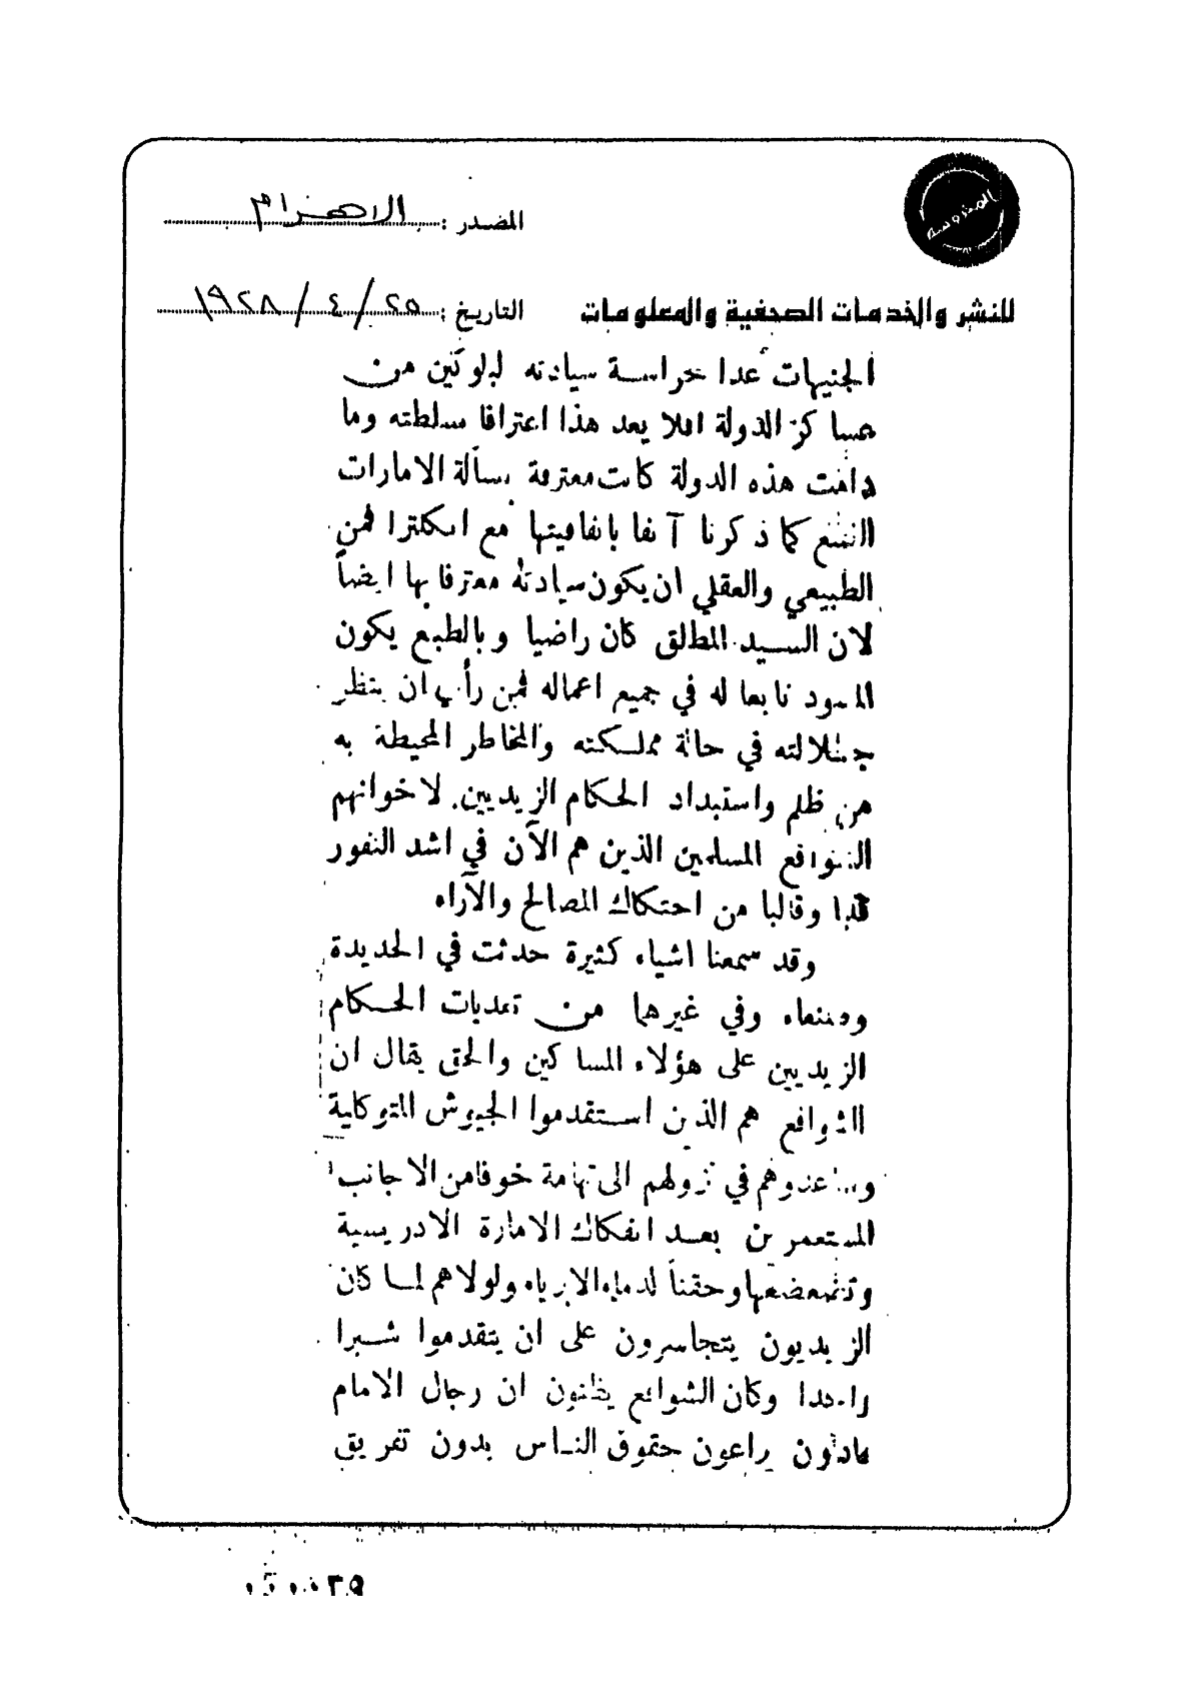 المحروسة
المصدر : الاهرام
للنشر والخدمات الصحفية والمعلومات
التاريخ : ٢٥ / ٤ / ١٩٢٨
الجنيهات عدا حراسة سيادته لبلوكين من
عساكر الدولة افلا يعد هذا اعترافا بسلطته وما
دامت هذه الدولة كانت معترفة بمسألة الامارات
التسع كما ذكرنا آنفا باتفاقيتها مع انكلترا فمن
الطبيعي والعقلي ان يكون سيادته معترفا بها ايضاً
لان السيد المطلق كان راضيا وبالطبع يكون
المسود تابعا له في جميع اعماله فمن رأيي ان ينظر
جلالته في حالة مملكته والمخاطر المحيطة به
من ظلم واستبداد الحكام الزيديين لاخوانهم
الشوافع المسلمين الذين هم الآن في اشد النفور
قلبا وقالبا من احتكاك المصالح والآراء
وقد سمعنا اشياء كثيرة حدثت في الحديدة
وصنعاء وفي غيرهما من تعديات الحكام
الزيديين على هؤلاء المساكين والحق يقال ان
الشوافع هم الذين استقدموا الجيوش المتوكلية
وساعدوهم في نزولهم الى تهامة خوفا من الاجانب
المستعمرين بعد انفكاك الامارة الادريسية
وتضعضعها وحقناً لدماء الابرياء ولولاهم لما كان
الزيديون يتجاسرون على ان يتقدموا شبرا
واحدا وكان الشوافع يظنون ان رجال الامام
عادلون يراعون حقوق الناس بدون تفريق